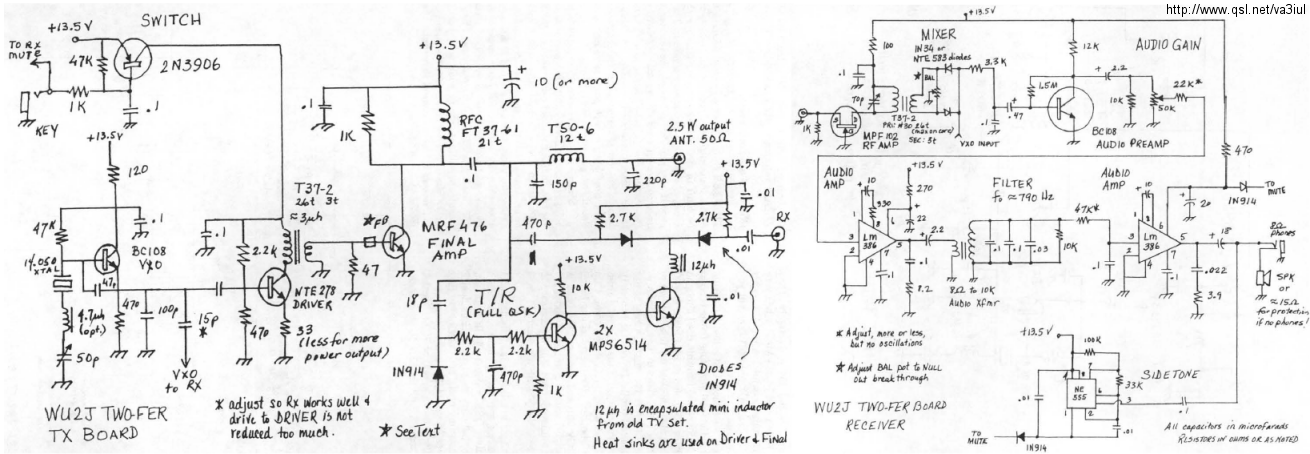 http://www.qsl.net/va3iul
SWITCH
+13.5V
TO RX
MUTE
47K
2N3906
1K
.1
KEY
+13.5V
120
.1
47K
14.060
XTAL
BC108
VXO
47p
4.7µh
(opt.)
50p
470
100p
15p
*
VXO
to RX
T37-2
26t 3t
≈3µh
.1
2.2K
NTE278
DRIVER
470
33
(less for more
power output)
+13.5V
10 (or more)
.1
1K
RFC
FT37-61
21t
.1
T50-6
12t
2.5W output
ANT. 50Ω
150p
220p
+13.5V
.01
*FB
MRF476
FINAL
AMP
47
470p
2.7K
2.7K
RX
.01
12µh
.01
18p
T/R
(FULL QSK)
+13.5V
10K
2.2K
2.2K
2X
MPS6514
1N914
470p
1K
DIODES
1N914
WU2J TWO-FER
TX BOARD
* adjust so Rx works well &
drive to DRIVER is not
reduced too much.
* See Text
12µh is encapsulated mini inductor
from old TV set.
Heat sinks are used on Driver & Final
+13.5V
100
.1
MIXER
1N34 or
NTE 583 diodes
* BAL
3.3K
70p
1K
MPF102
RF AMP
T37-2
PRI: #30 26t
(max on core)
SEC: 5t
VXO INPUT
.1
.47
1.5M
12K
AUDIO GAIN
2.2
10K
50K
22K*
BC108
AUDIO PREAMP
470
AUDIO
AMP
+13.5V
10
330
270
22
1
8
6
3
2
4
5
7
Lm
386
.1
2.2
8.2
FILTER
f₀ ≈ 790 Hz
.1
.1
.03
10K
8Ω to 10K
Audio Xfmr
47K*
.1
AUDIO
AMP
10
1
8
6
3
2
4
5
7
Lm
386
.1
20
1N914
TO
MUTE
18
.022
3.9
8Ω
phones
SPK
or
≈15Ω
for protection
if no phones!
* Adjust, more or less,
but no oscillations
* Adjust BAL pot to NULL
out breakthrough
+13.5V
100K
33K
SIDETONE
NE
555
.01
.1
.01
TO
MUTE
1N914
WU2J TWO-FER BOARD
RECEIVER
All capacitors in microfarads
RESISTORS IN OHMS OR AS NOTED